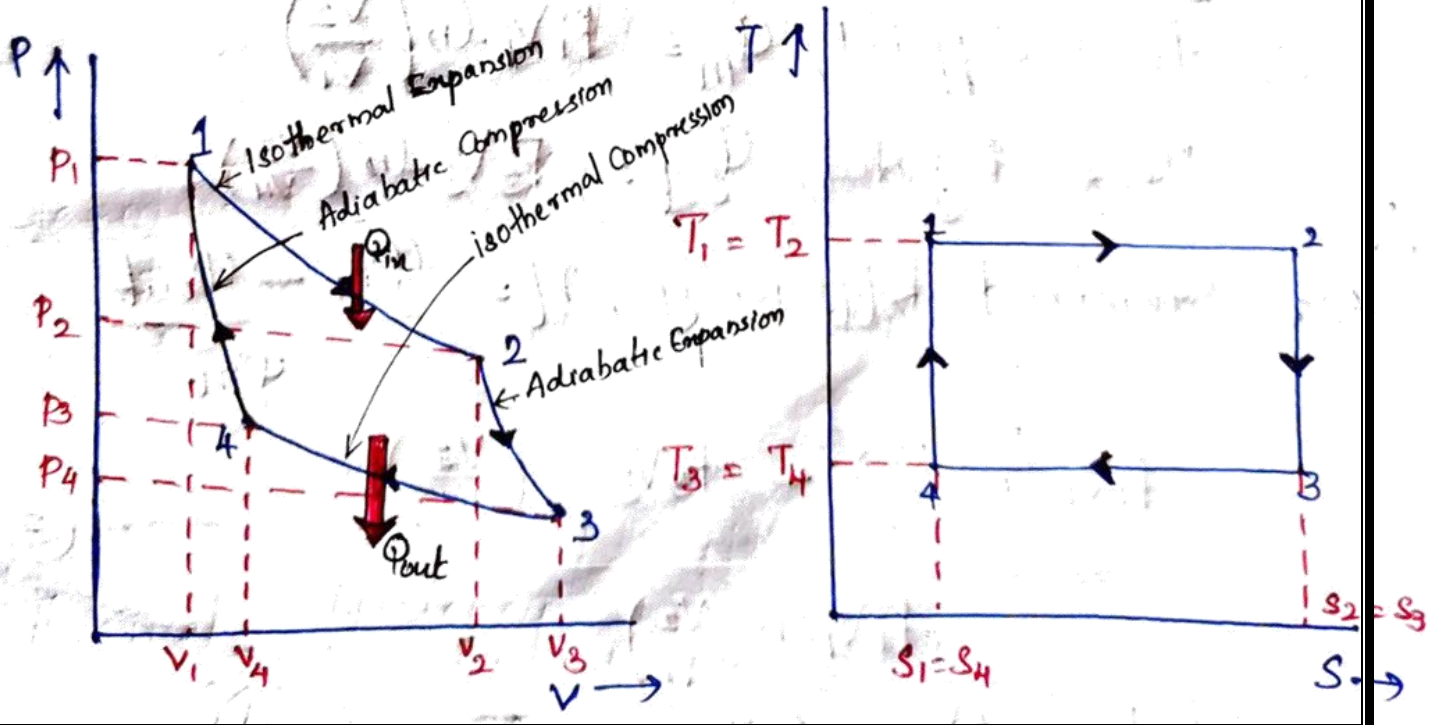 P ↑
1
Isothermal Expansion
Adiabatic Compression
isothermal Compression
P1
Qin
P2
2
Adiabatic Expansion
P3
4
P4
3
Qout
V1 V4 V2 V3
V →
T ↑
1 2
T1 = T2
T3 = T4
4 3
S1=S4
S2 = S3
S →